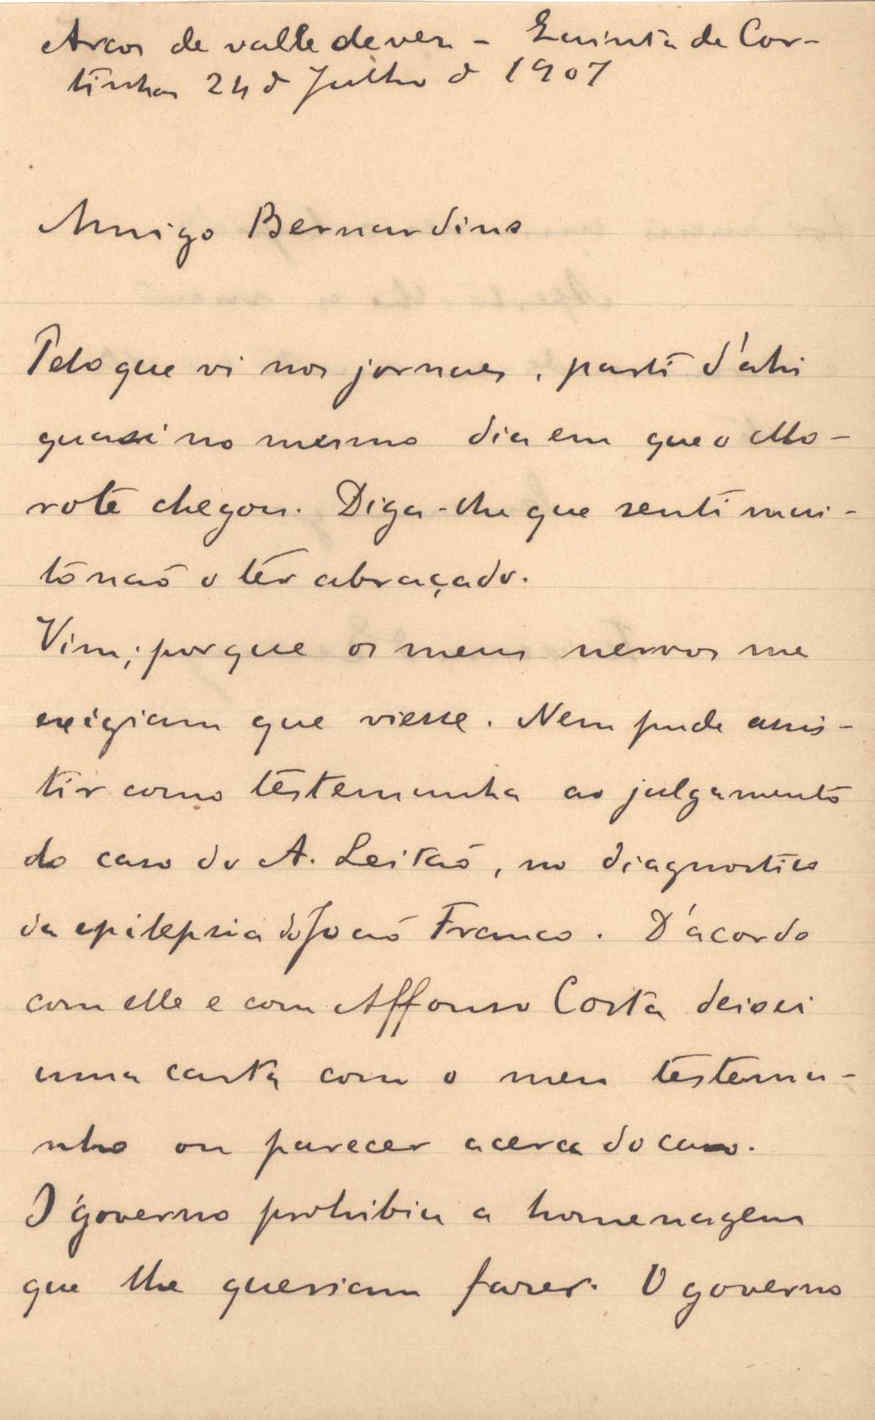 Arcos de valle de vez – Quinta de Cor-
tinhas 24 d Julho d 1907
Amigo Bernardino
Pelo que vi nos jornaes, parti d'ahi
quasi no mesmo dia em que o Mo-
rote chegou. Diga-lhe que senti mui-
to não o ter abraçado.
Vim, porque os meus nervos me
exigiam que viesse. Nem pude assis-
tir como testemunha ao julgamento
do caso do A. Leitão, no diagnostico
da epilepsia do João Franco. D'acordo
com elle e com Affonso Costa deixei
uma carta com o meu testemu-
nho ou parecer acerca do caso.
O governo prohibiu a homenagem
que lhe queriam fazer. O governo